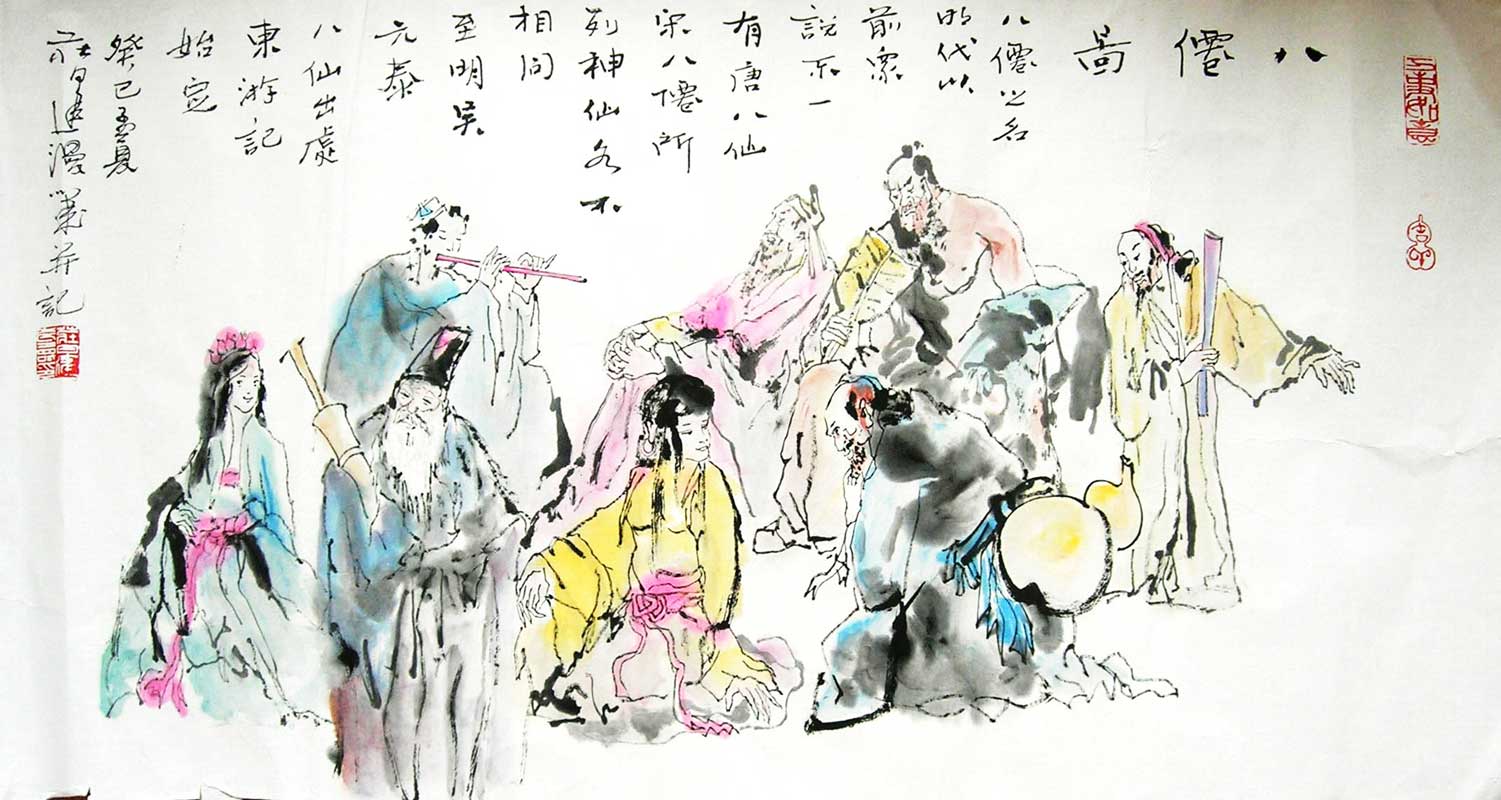 事如意
八僊啚
八僊之名
明代以
前眾
説不一
有唐八仙
宋八僊所
列神仙各不
相同
至明吴
元泰
八仙出處
東游記
始定
癸巳孟夏
漫筆并記